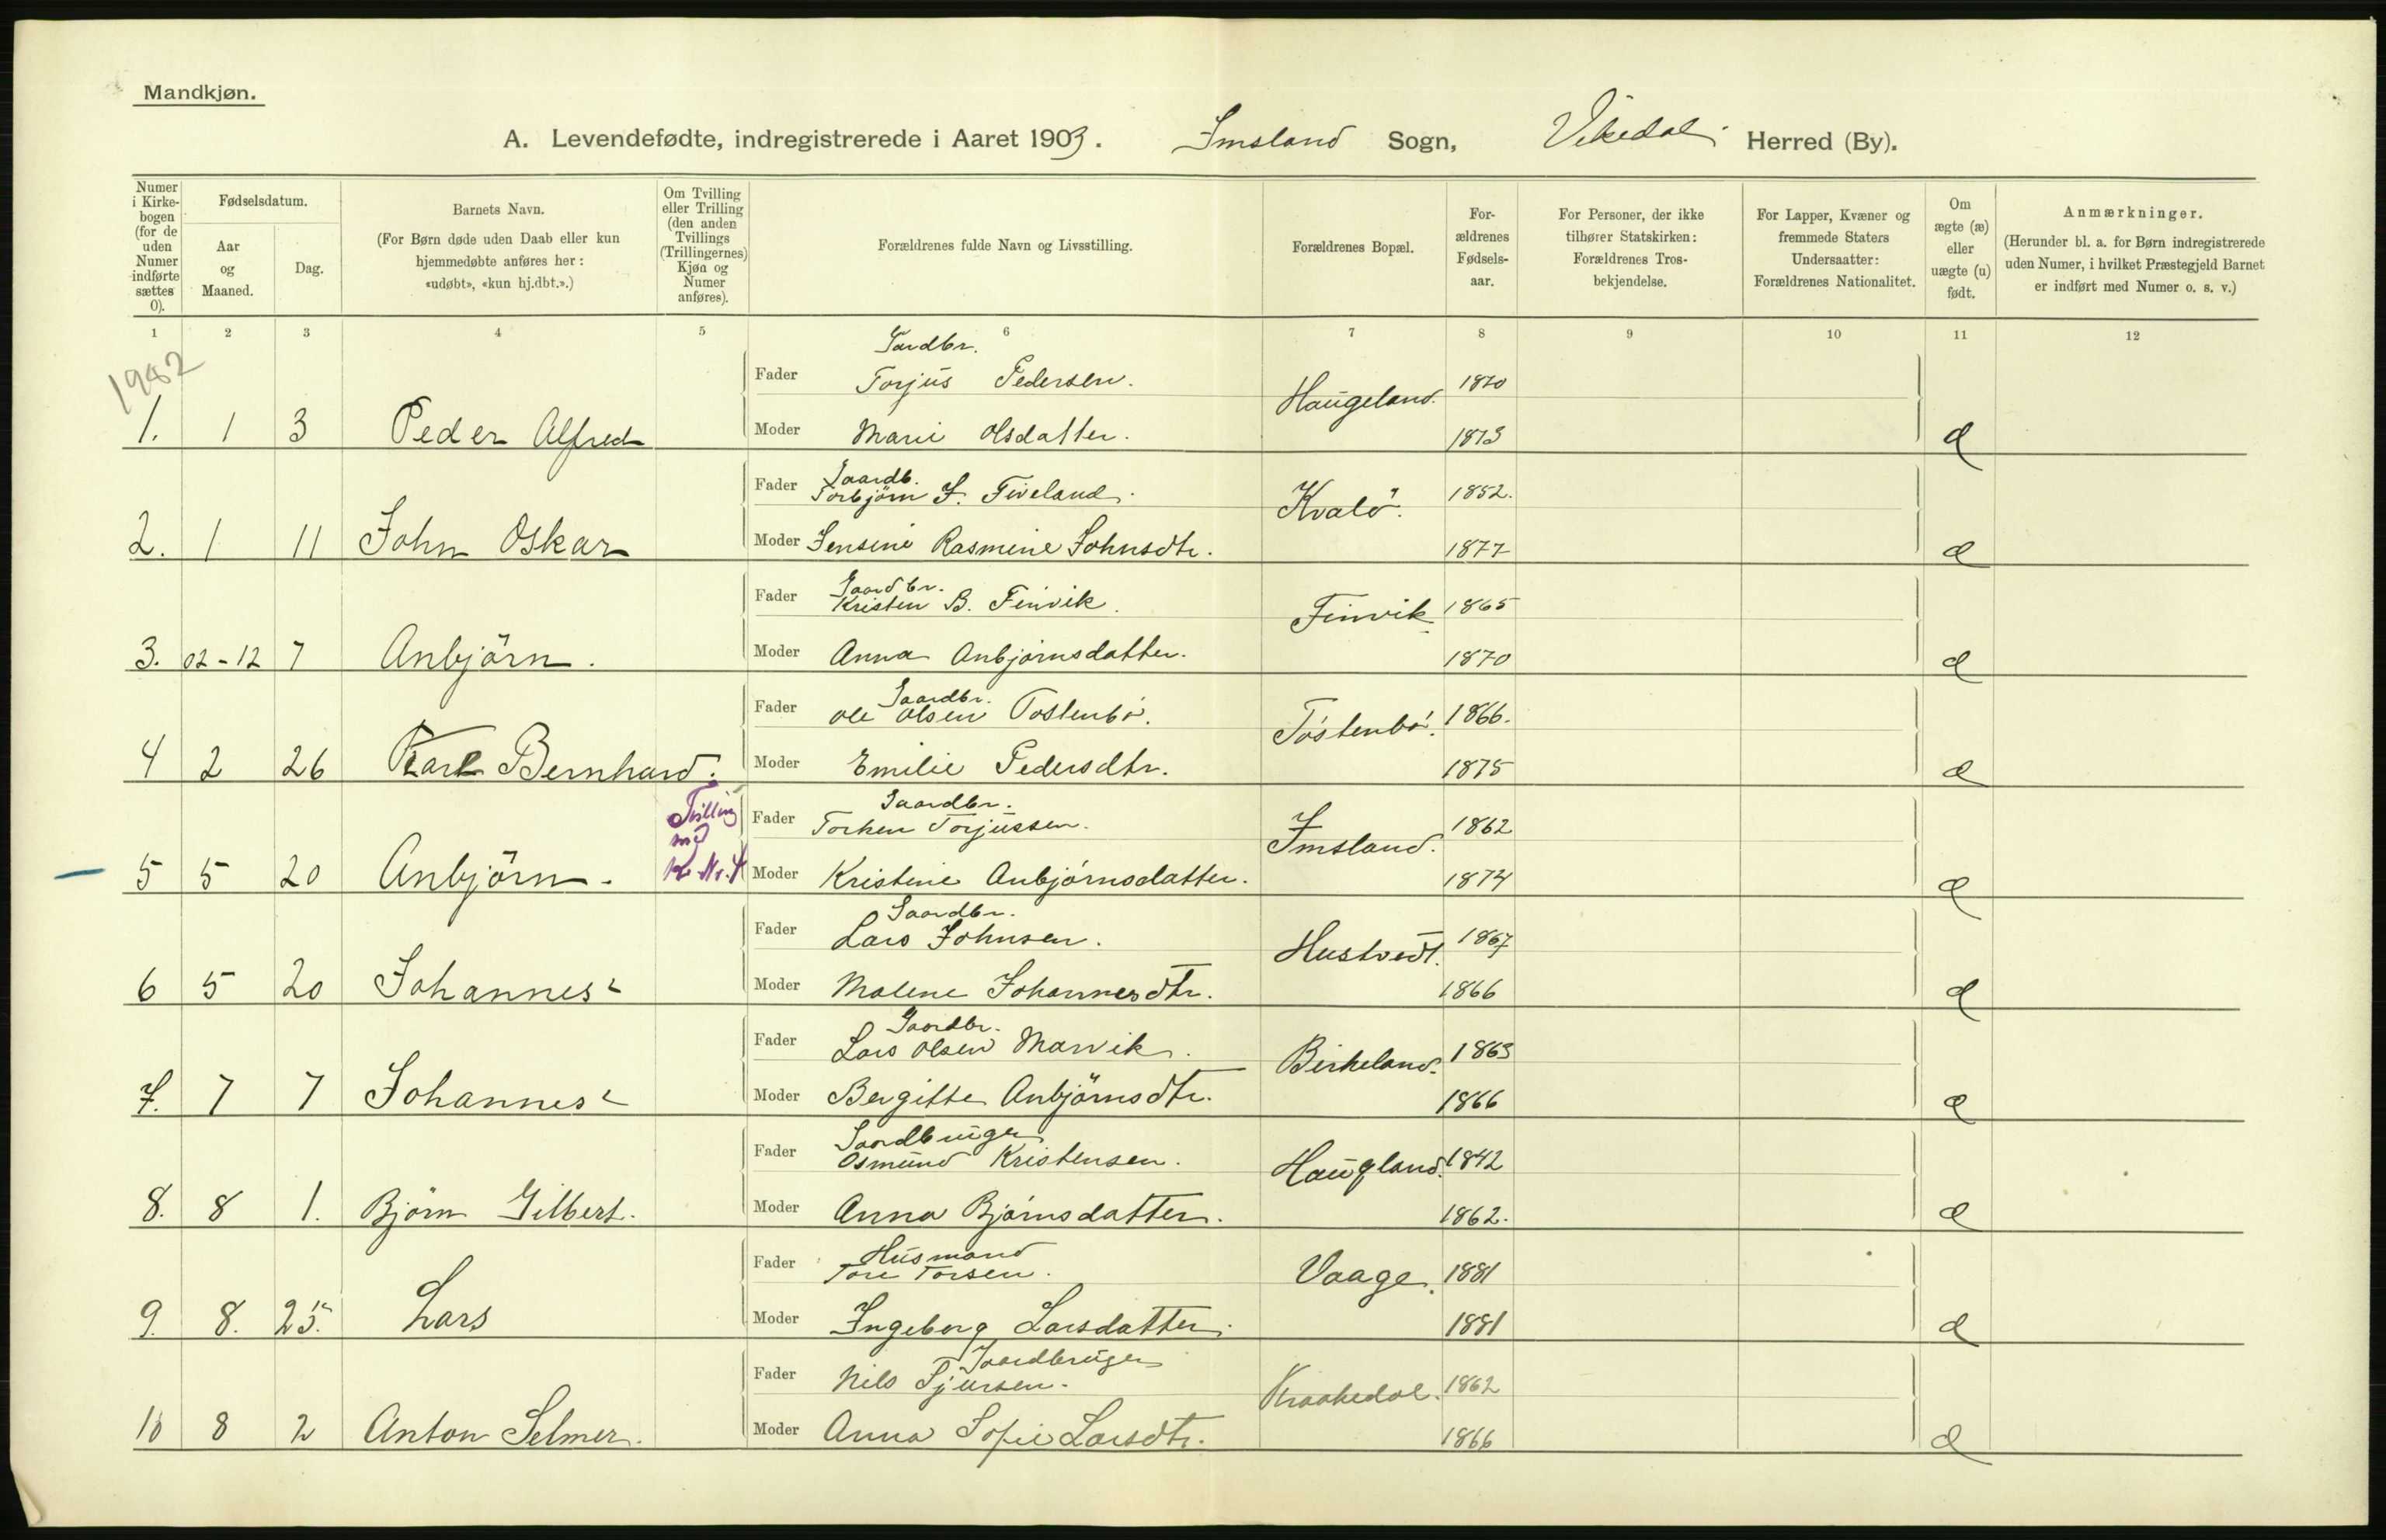 Mandkjøn.
A. Levendefødte, indregistrerede i Aaret 1903. Imsland Sogn, Vikedal Herred (By).
Numer i Kirkebogen (for de uden Numer indførte sættes 0).
Fødselsdatum.
Aar og Maaned.
Dag.
Barnets Navn.
(For Børn døde uden Daab eller kun hjemmedøbte anføres her: «udøbt», «kun hj.dbt.».)
Om Tvilling eller Trilling (den anden Tvillings (Trillingernes) Kjøn og Numer anføres).
Forældrenes fulde Navn og Livsstilling.
Forældrenes Bopæl.
Forældrenes Fødselsaar.
For Personer, der ikke tilhører Statskirken: Forældrenes Trosbekjendelse.
For Lapper, Kvæner og fremmede Staters Undersaatter: Forældrenes Nationalitet.
Om ægte (æ) eller uægte (u) født.
Anmærkninger.
(Herunder bl. a. for Børn indregistrerede uden Numer, i hvilket Præstegjeld Barnet er indført med Numer o. s. v.)
1 2 3 4 5 6 7 8 9 10 11 12
1982
Gardbr.
Fader Torjus Pedersen. Haugeland. 1870
1. 1 3 Peder Alfred Moder Marie Olsdatter. 1873 æ
Gaardb.
Fader Torbjörn J. Tiveland. Kvalö. 1852.
2. 1 11 John Oskar Moder Jensine Rasmine Johnsdtr. 1877 æ
Gaardbr.
Fader Kristen B. Finvik. Finvik 1865
3. 02-12 7 Anbjörn. Moder Anna Anbjörnsdatter. 1870 æ
Gaardbr.
Fader Ole Olsen Tostenbö. Töstenbö. 1866.
4 2 26 Karl Bernhard. Moder Emilie Pedersdtr. 1875 æ
Tvilling med Kv. Nr. 4
Gaardbr.
Fader Torken Torjussen. Imsland. 1862
5 5 20 Anbjörn. Moder Kristine Anbjörnsdatter. 1874 æ
Gaardbr.
Fader Lars Johnsen. Hustvedt. 1867
6 5 20 Johannes Moder Malene Johannesdtr. 1866 æ
Gaardbr.
Fader Lars Olsen Marvik. Birkeland. 1863
7. 7 7 Johannes Moder Bergitte Anbjörnsdtr. 1866 æ
Gaardbruger
Fader Osmund Kristensen. Haugland. 1842
8. 8 1. Björn Gilbert. Moder Anna Björnsdatter. 1862. æ
Husmand
Fader Tore Torsen. Vaage. 1881
9. 8. 25. Lars Moder Ingeborg Larsdatter. 1881 æ
Gaardbruger
Fader Nils Sjursen. Kraakedal. 1862
10 8 2 Anton Selmer. Moder Anna Sofie Larsdtr. 1866 æ